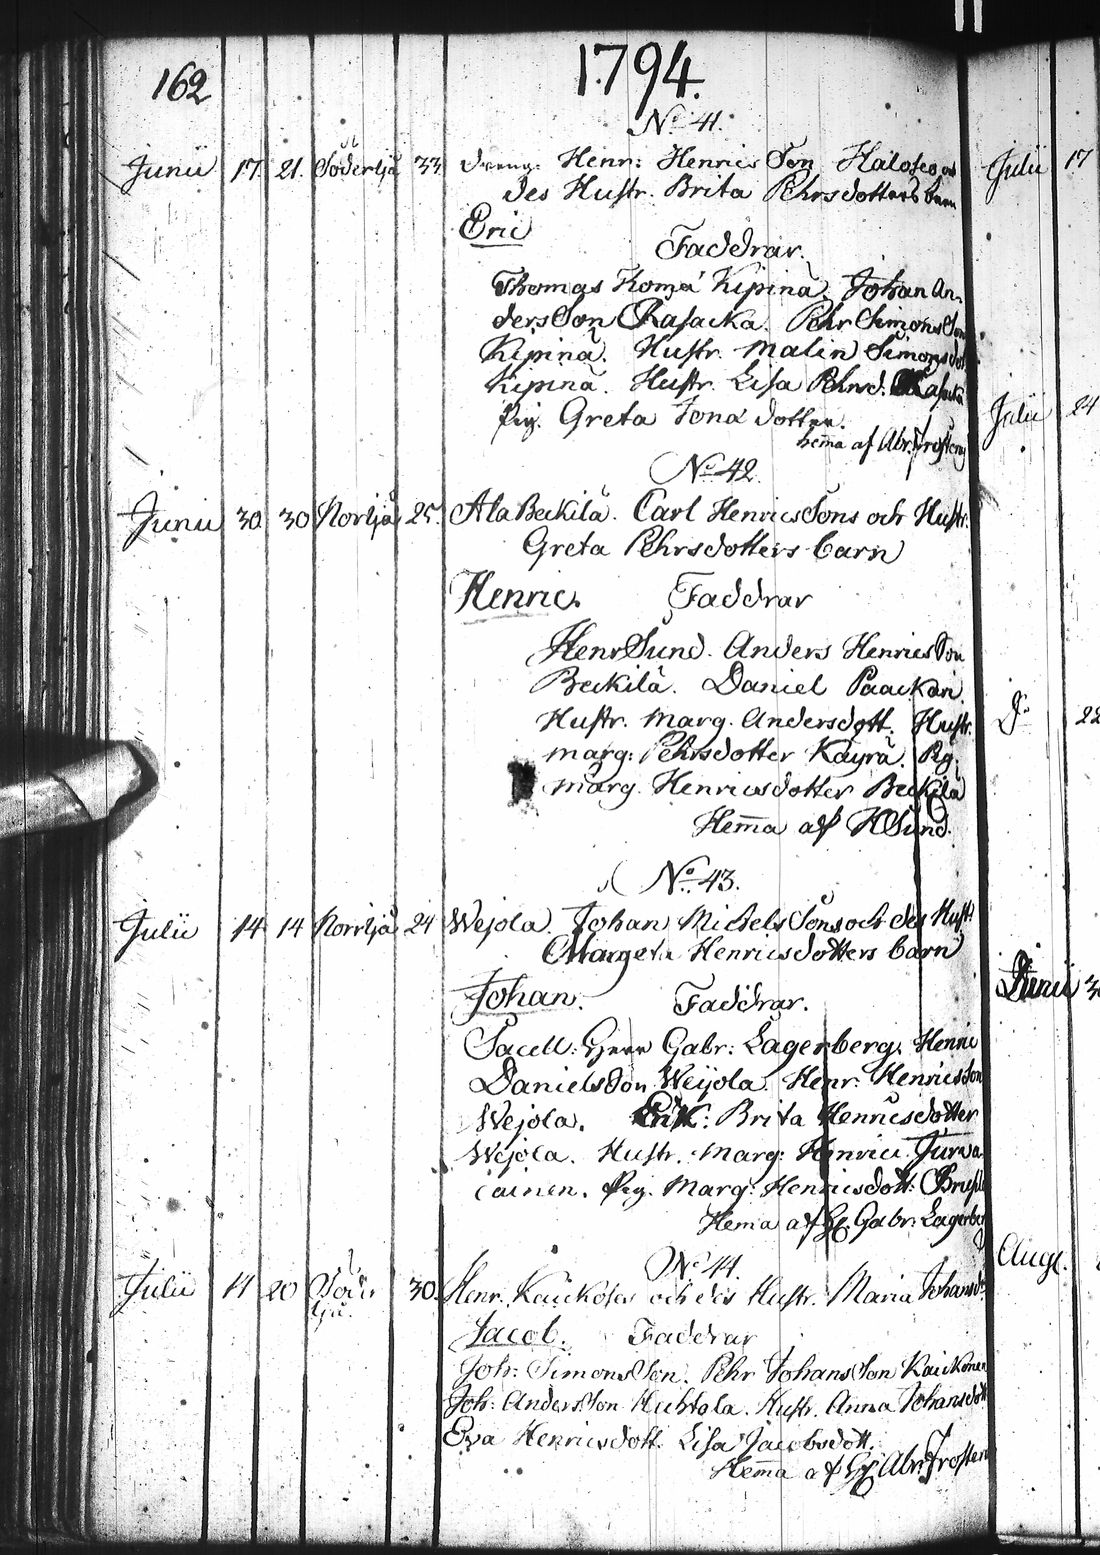 162
1794.
No 41.
Junii 17. 21. Söderljå 33 dreng: Henr: Henrics Son
des Hustr. Brita Pehrsdotters barn
Eric
Faddrar.
Thomas Thoma Kipinä. Johan An-
ders Son Rasacka. Pehr Simons Son
Kipinä. Hustr. Malin Simonsdot
Kipinä. Hustr. Lisa Pehrsd. Rasacka
Pig. Greta Jona dotter.
hem̄a af Abr: Frosterus
No 42.
Junii 30. 30 Norrljå 25. Ala Beckilä. Carl Henrics Sons och Hustr:
Greta Pehrsdotters barn
Henric. Faddrar
Henr Sund. Anders Henrics Son
Beckilä. Daniel Paackari
Hustr. Marg. Andersdott. Hustr.
Marg: Pehrsdotter Kayrä. Pig.
Marg. Henricsdotter Beckilä
Hem̄a af HSund.
No 43.
Julii 14 14 Norrljå 24 Wejola. Johan Michels Sons och des Hust:
Margeta Henricsdotters barn
Johan. Faddrar.
Sacell: Herr Gabr: Lagerberg. Henric
Daniels Son Weijola. Henr: Henrics Son
Wejola. Enk: Brita Henricsdotter
Wejola. Hustr. Marg: Henrici
iainen. Pig. Marg: Henricsdott:
Hema af Gabr: Lagerberg
No 44.
Julii 11 20 Söder 30. Henr. och des Hustr. Maria Johansd.
ljå.
Jacob. Faddrar
Joh: Simons Son. Pehr Johans Son Kaickonen
Joh: Anders Son Huhtala. Hustr. Anna Johansdott
Eva Henricsdott. Lisa Jacobsdott.
Hem̄a af Abr: Frosterus
Julii 17
Julii 24
Do 22
Junii 30
Aug.